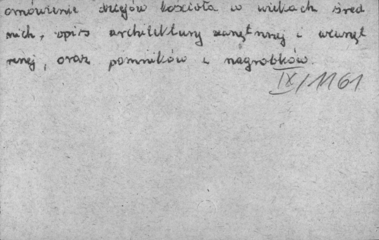 omówienie dziejów kościoła w wiekach śred
nich, opis architektury zewnętrznej i wewnęt
rznej, oraz pomników i nagrobków.
IX/1161